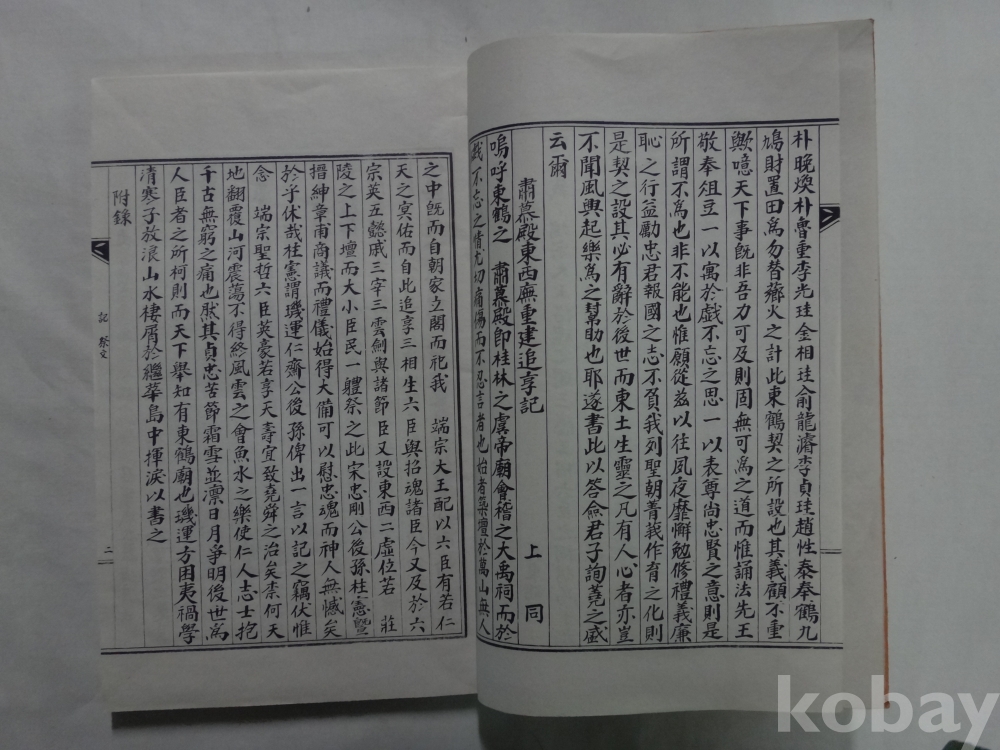 朴晚煥朴魯重李光珪金相珪俞龍濬李貞珪趙性泰奉鶴九
鳩財置田爲勿替薌火之計此東鶴契之所設也其義顧不重
歟噫天下事旣非吾力可及則固無可爲之道而惟誦法先王
敬奉俎豆一以寓於戲不忘之思一以表尊尚忠賢之意則是
所謂不爲也非不能也惟願從玆以往夙夜靡懈勉修禮義廉
恥之行益勵忠君報國之志不負我列聖朝菁莪作育之化則
是契之設其必有辭於後世而東土生靈之凡有人心者亦豈
不聞風興起樂爲之幫助也耶遂書此以答僉君子詢蕘之盛
云爾
肅慕殿東西廡重建追享記 上同
嗚呼東鶴之 肅慕殿卽桂林之虞帝廟會稽之大禹祠而於
戲不忘之情尤切痛傷而不忍言者也始者築壇於萬山無人
之中旣而自朝家立閣而祀我 端宗大王配以六臣有若仁
天之冥佑而自此追享三相生六臣與招魂諸臣今又及於六
宗英五懿戚三宰三雲劍與諸節臣又設東西二虛位若 莊
陵之上下壇而大小臣民一軆祭之此宋忠剛公後孫柱憲曁
搢紳章甫商議而禮儀始得大備可以慰忠魂而神人無憾矣
於乎休哉柱憲謂璣運仁齋公後孫俾出一言以記之竊伏惟
念 端宗聖哲六臣英豪若享天壽宜致堯舜之治矣柰何天
地翻覆山河震蕩不得終風雲之會魚水之樂使仁人志士抱
千古無窮之痛也然其貞忠苦節霜雪並凛日月爭明後世爲
人臣者之所柯則而天下舉知有東鶴廟也璣運方困夷禍學
清寒子放浪山水棲屑於繼華島中揮淚以書之
附錄
記 祭文
二